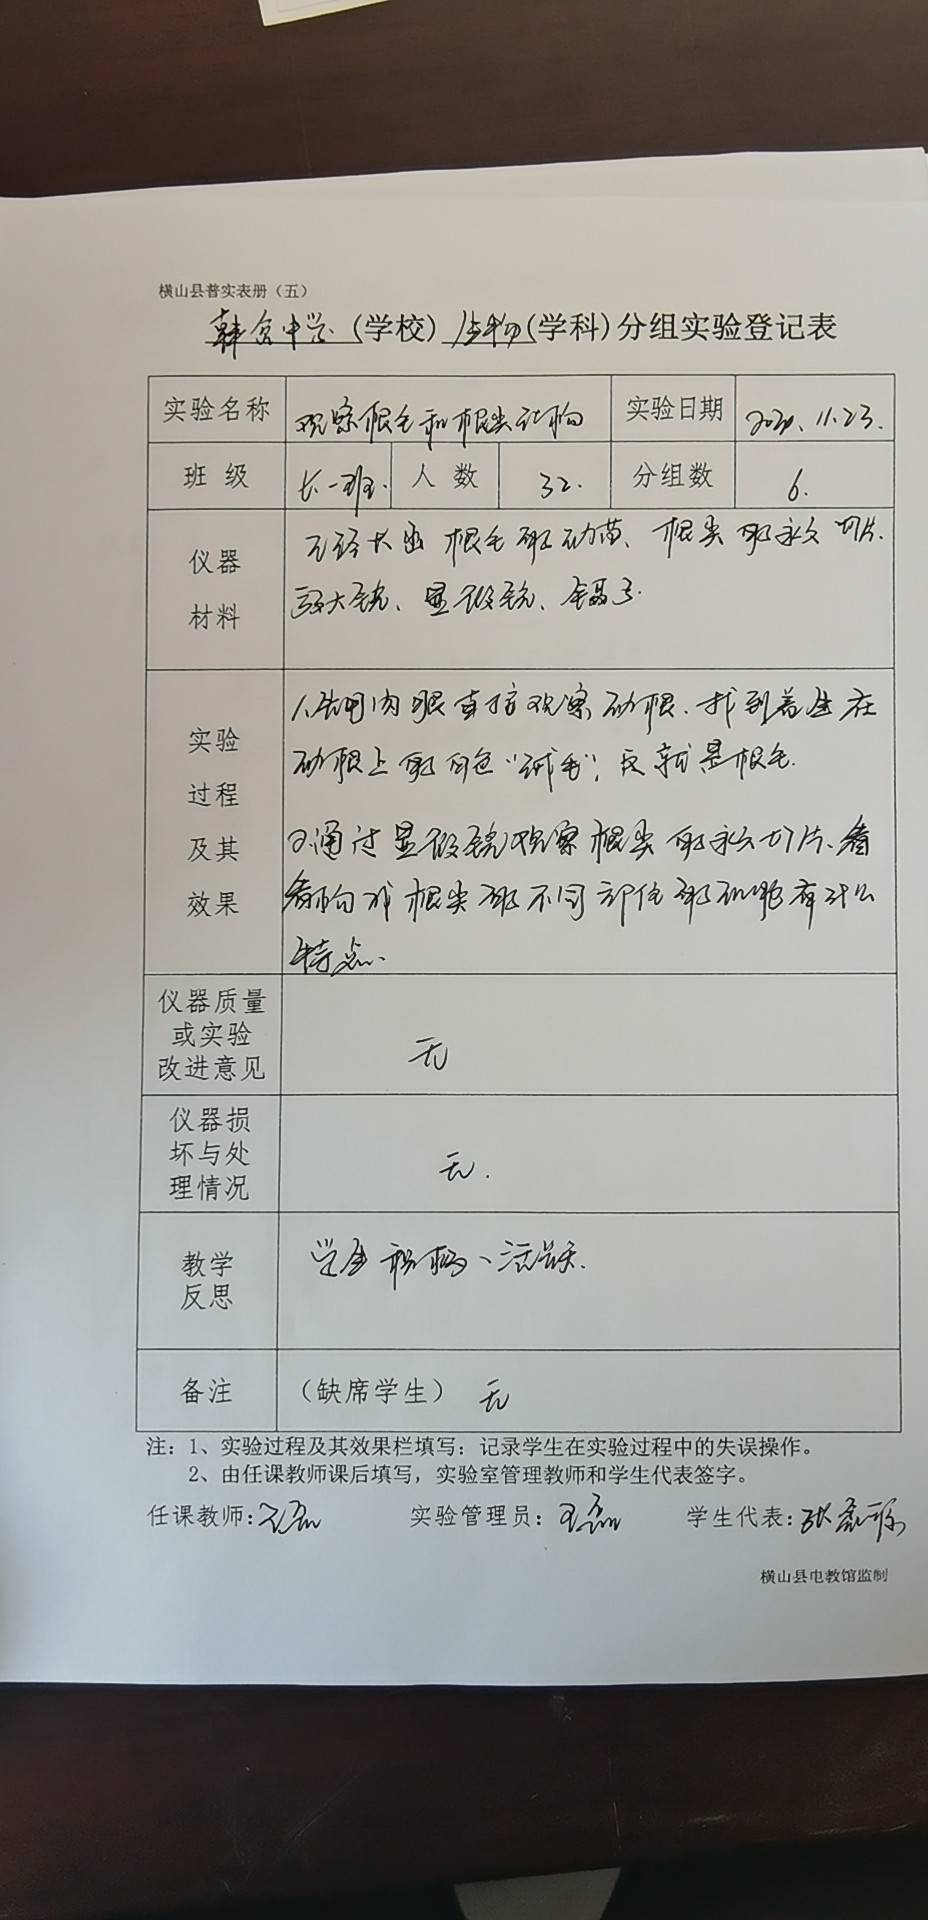 横山县普实表册（五）
韩岔中学(学校)生物(学科)分组实验登记表
实验名称 观察根毛和根尖结构 实验日期 2020.11.23.
班级 七一班. 人数 32. 分组数 6.
仪器材料 已经长出根毛的幼苗、根尖的永久切片.
放大镜、显微镜、镊子.
实验过程及其效果 1.先用肉眼直接观察幼根.找到着生在
幼根上的白色“绒毛”,这就是根毛.
2.通过显微镜观察根尖的永久切片.看
看 根尖的不同部位的细胞有什么
特点.
仪器质量或实验改进意见 无
仪器损坏与处理情况 无.
教学反思 学生积极、活跃.
备注 （缺席学生） 无
注：1、实验过程及其效果栏填写：记录学生在实验过程中的失误操作。
2、由任课教师课后填写，实验室管理教师和学生代表签字。
任课教师: 实验管理员: 王磊 学生代表: 张
横山县电教馆监制